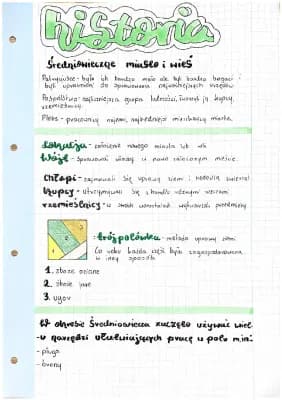 historia
Średniowieczne miasto i wieś
Patrycjusze - było ich bardzo mało ale byli bardzo bogaci i
byli uprawnieni do sprawowania najważniejszych urzędów
Pospólstwo - najliczniejsza grupa ludności, tworzyli ją kupcy,
rzemieślnicy.
Plebs - pracownicy najemni, najbiedniejsi mieszkańcy miasta.
Lokacja - założenie nowego miasta lub wsi
Wójt - sprawował władzę w nowo założonym mieście.
Chłopi - zajmowali się uprawą ziemi i hodowlą zwierząt
Kupcy - utrzymywali się z handlu różnymi
rzemieślnicy - w swoich warsztatach wytwarzali przedmioty
1
2
3
trójpolówka - metoda uprawy ziemi
Co roku każda część była zagospodarowana
w inny sposób
1. zboże ozime
2. zboże jare
3. ugór
W okresie Średniowiecza zaczęto używać wiel-
u narzędzi ułatwiających pracę w polu m.in:
- pługa
- brony